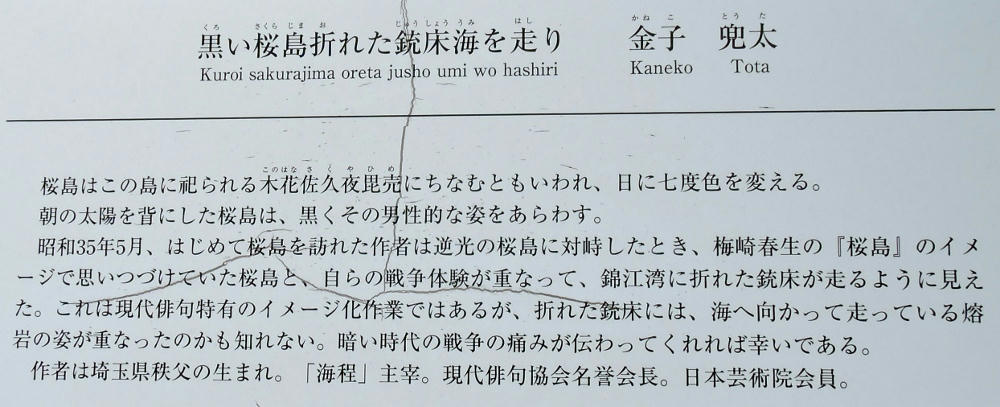 黒い桜島折れた銃床海を走り　金子　兜太
Kuroi sakurajima oreta jusho umi wo hashiri　Kaneko　Tota
桜島はこの島に祀られる木花佐久夜毘売にちなむともいわれ、日に七度色を変える。
朝の太陽を背にした桜島は、黒くその男性的な姿をあらわす。
昭和35年5月、はじめて桜島を訪れた作者は逆光の桜島に対峙したとき、梅崎春生の『桜島』のイメ
ージで思いつづけていた桜島と、自らの戦争体験が重なって、錦江湾に折れた銃床が走るように見え
た。これは現代俳句特有のイメージ化作業ではあるが、折れた銃床には、海へ向かって走っている熔
岩の姿が重なったのかも知れない。暗い時代の戦争の痛みが伝わってくれれば幸いである。
作者は埼玉県秩父の生まれ。「海程」主宰。現代俳句協会名誉会長。日本芸術院会員。